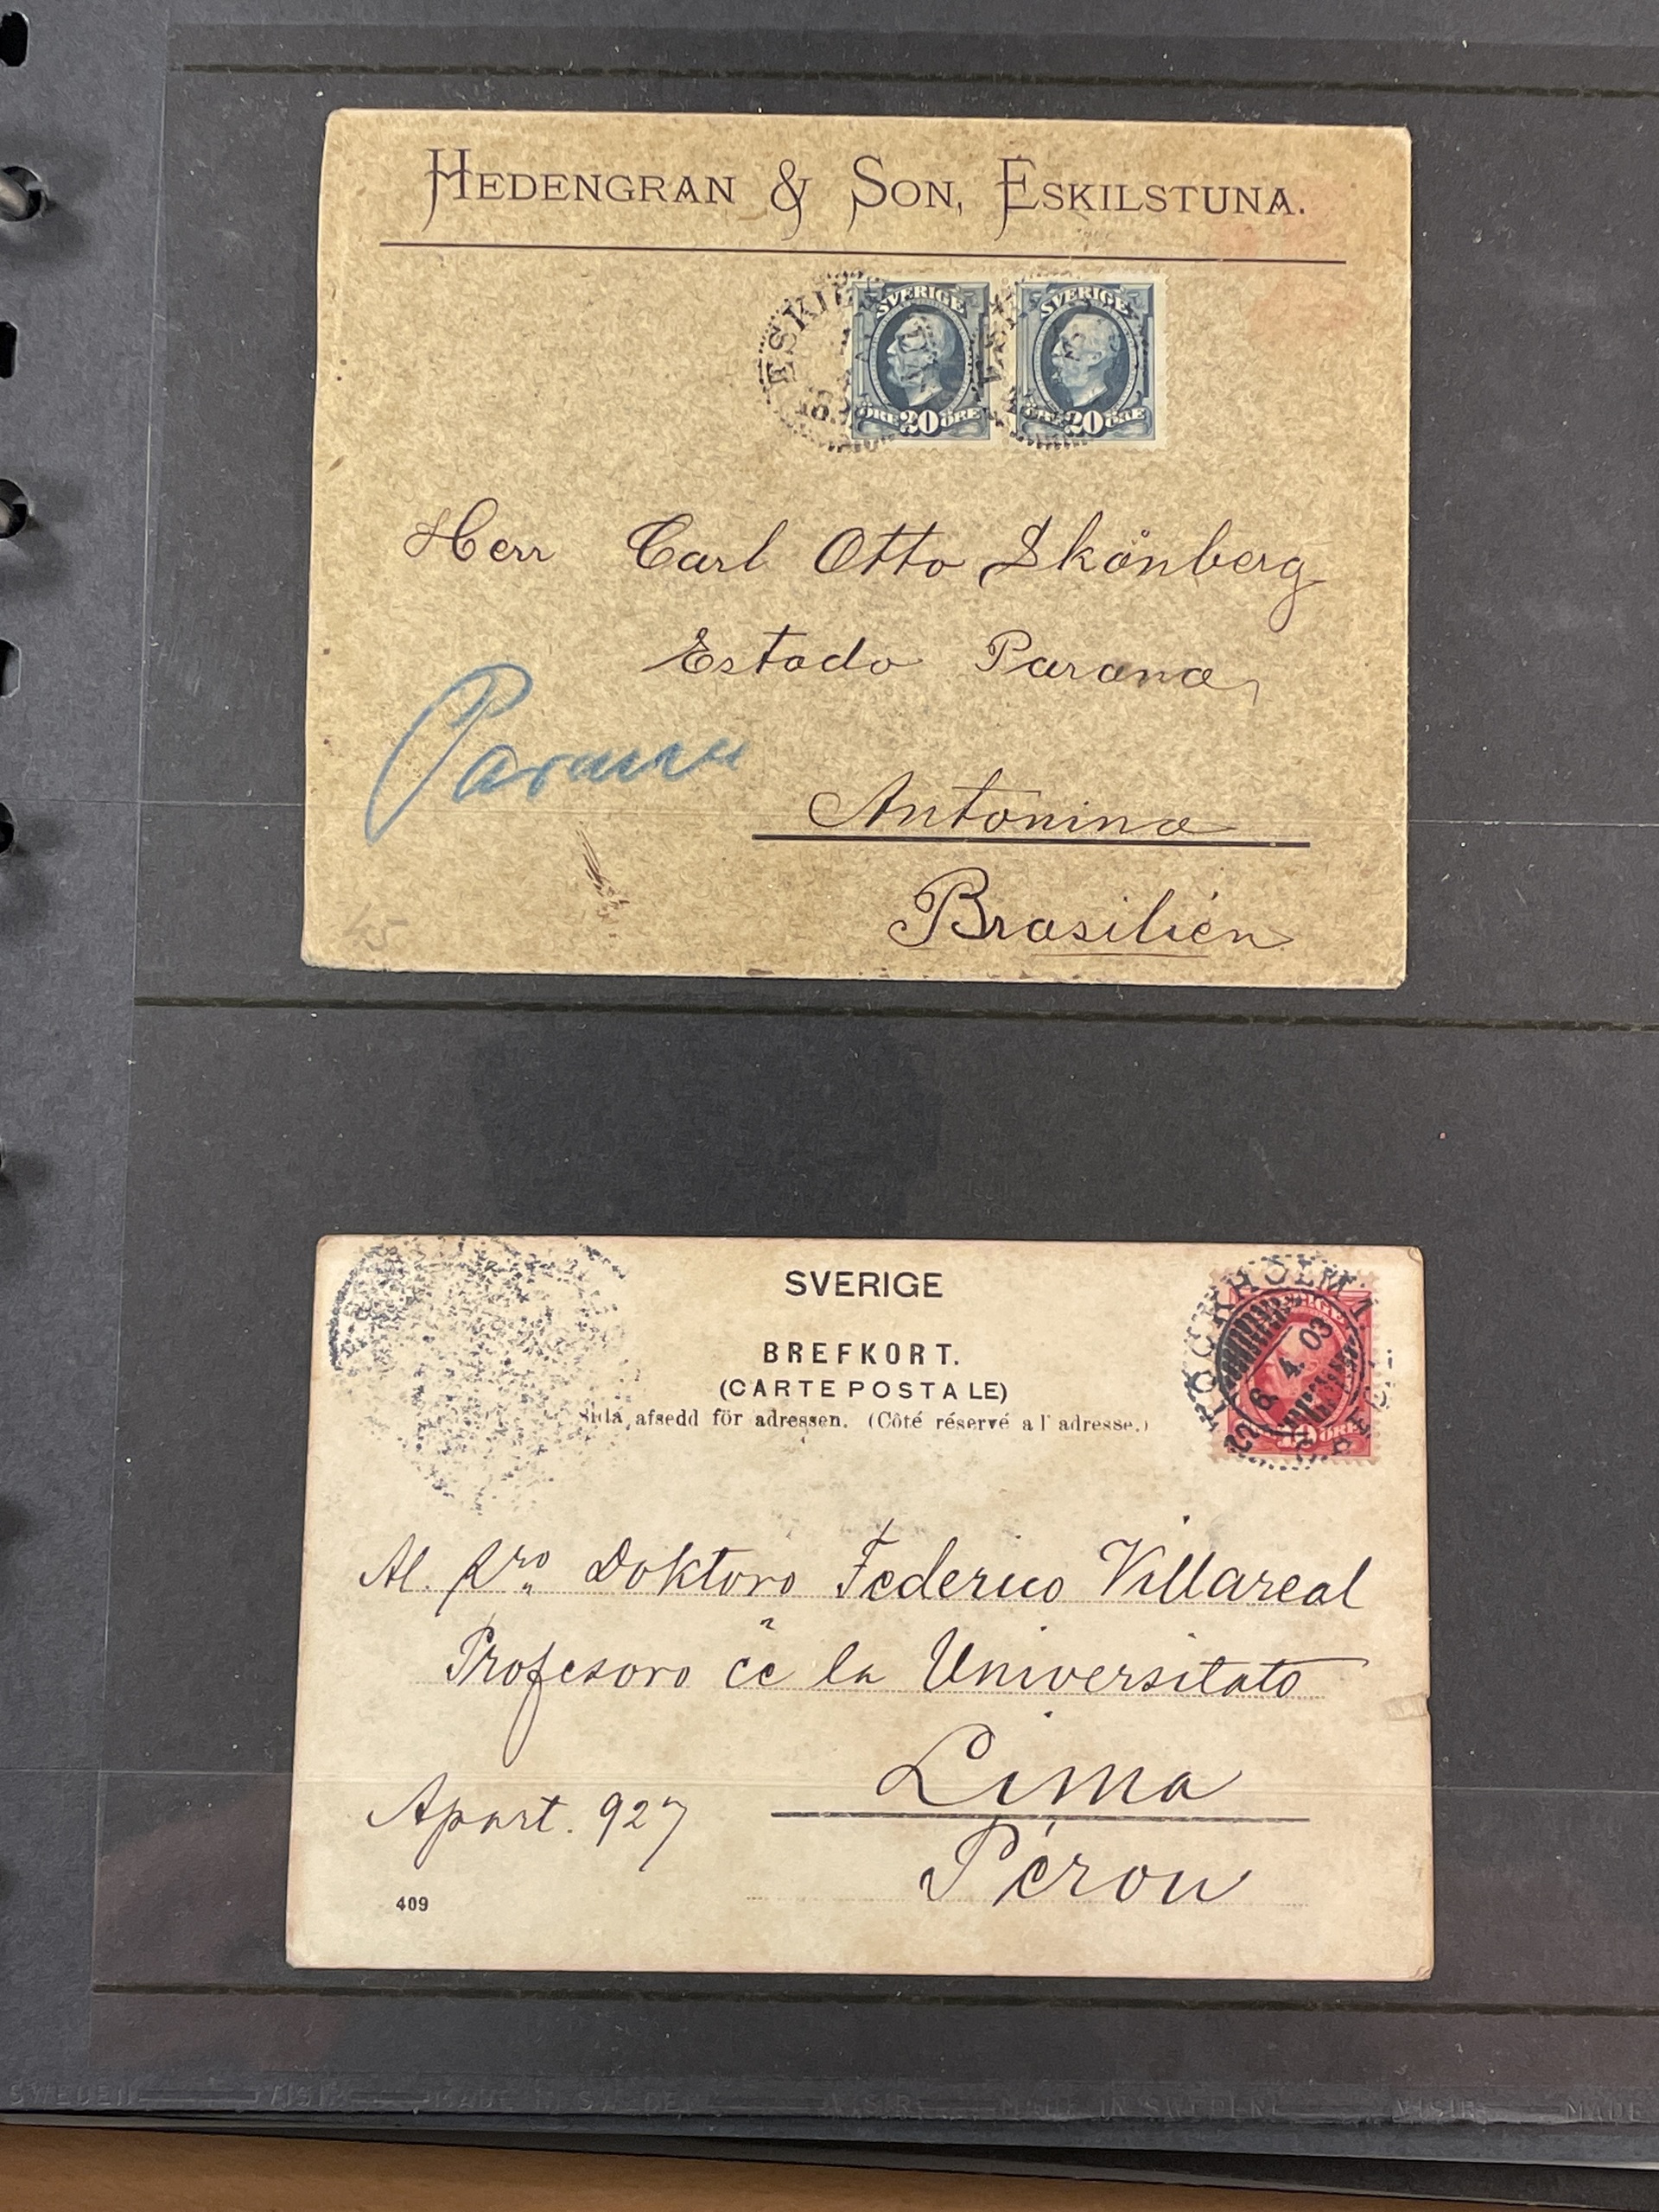 HEDENGRAN & SON, ESKILSTUNA.
SVERIGE SVERIGE
ÖRE 20 ÖRE ÖRE 20 ÖRE
Herr Carl Otto Skönberg
Estado Parana,
Parana
Antonina
Brasilién
65
SVERIGE
BREFKORT.
(CARTE POSTALE)
Sida afsedd för adressen. (Côté réservé a l' adresse.)
STOCKHOLM 1
22 6. 4. 03
10 ÖRE
Al. Sro Doktoro Federico Villareal
Profesoro ĉe la Universitato
Lima
Apart. 927
Pérou
409
SWEDEN VISIR MADE IN SWEDEN VISIR MADE IN SWEDEN VISIR MADE